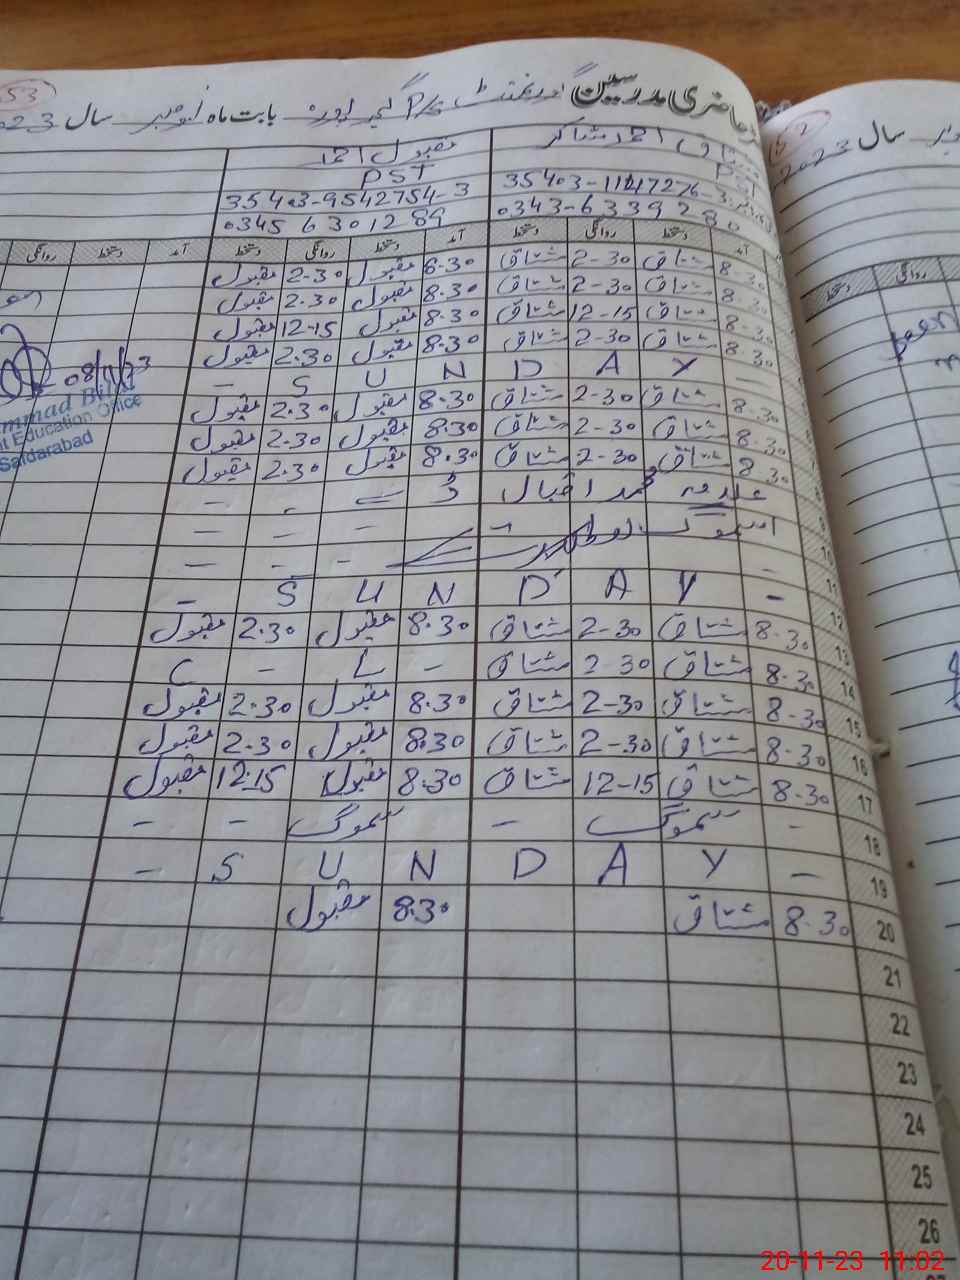 53
حاضری مدرسین گورنمنٹ P/S گجر پورہ بابت ماہ نومبر سال 2023
مشتاق احمد شاکر مقبول احمد
PST PST
35403-1147276-3 35403-9542754-3
0343-6339280 0345 6301289
آمد دستخط روانگی دستخط آمد دستخط روانگی دستخط آمد دستخط روانگی
8-30 مشتاق 2-30 مشتاق 8.30 مقبول 2-30 مقبول
8-30 مشتاق 2-30 مشتاق 8.30 مقبول 2.30 مقبول
8-30 مشتاق 12-15 مشتاق 8.30 مقبول 12-15 مقبول
8-30 مشتاق 2-30 مشتاق 8.30 مقبول 2.30 مقبول
- S U N D A Y -
8-30 مشتاق 2-30 مشتاق 8.30 مقبول 2.30 مقبول
8-30 مشتاق 2-30 مشتاق 8.30 مقبول 2.30 مقبول
8-30 مشتاق 2-30 مشتاق 8.30 مقبول 2.30 مقبول 8
علامہ محمد اقبال ڈے - - 9
سموگ - - - 10
- - - - 11
- S U N D A Y - 12
8-30 مشتاق 2-30 مشتاق 8.30 مقبول 2.30 مقبول 13
8-30 مشتاق 2-30 مشتاق - L - C 14
8-30 مشتاق 2-30 مشتاق 8.30 مقبول 2.30 مقبول 15
8-30 مشتاق 2-30 مشتاق 8.30 مقبول 2.30 مقبول 16
8-30 مشتاق 12-15 مشتاق 8.30 مقبول 12.15 مقبول 17
- سموگ - سموگ - - 18
- S U N D A Y - 19
8-30 مشتاق 8.30 مقبول 20
21
22
23
24
25
26
08/11/23
Education Office
Safdarabad
52
سال 2023
دستخط روانگی
20-11-23 11:02